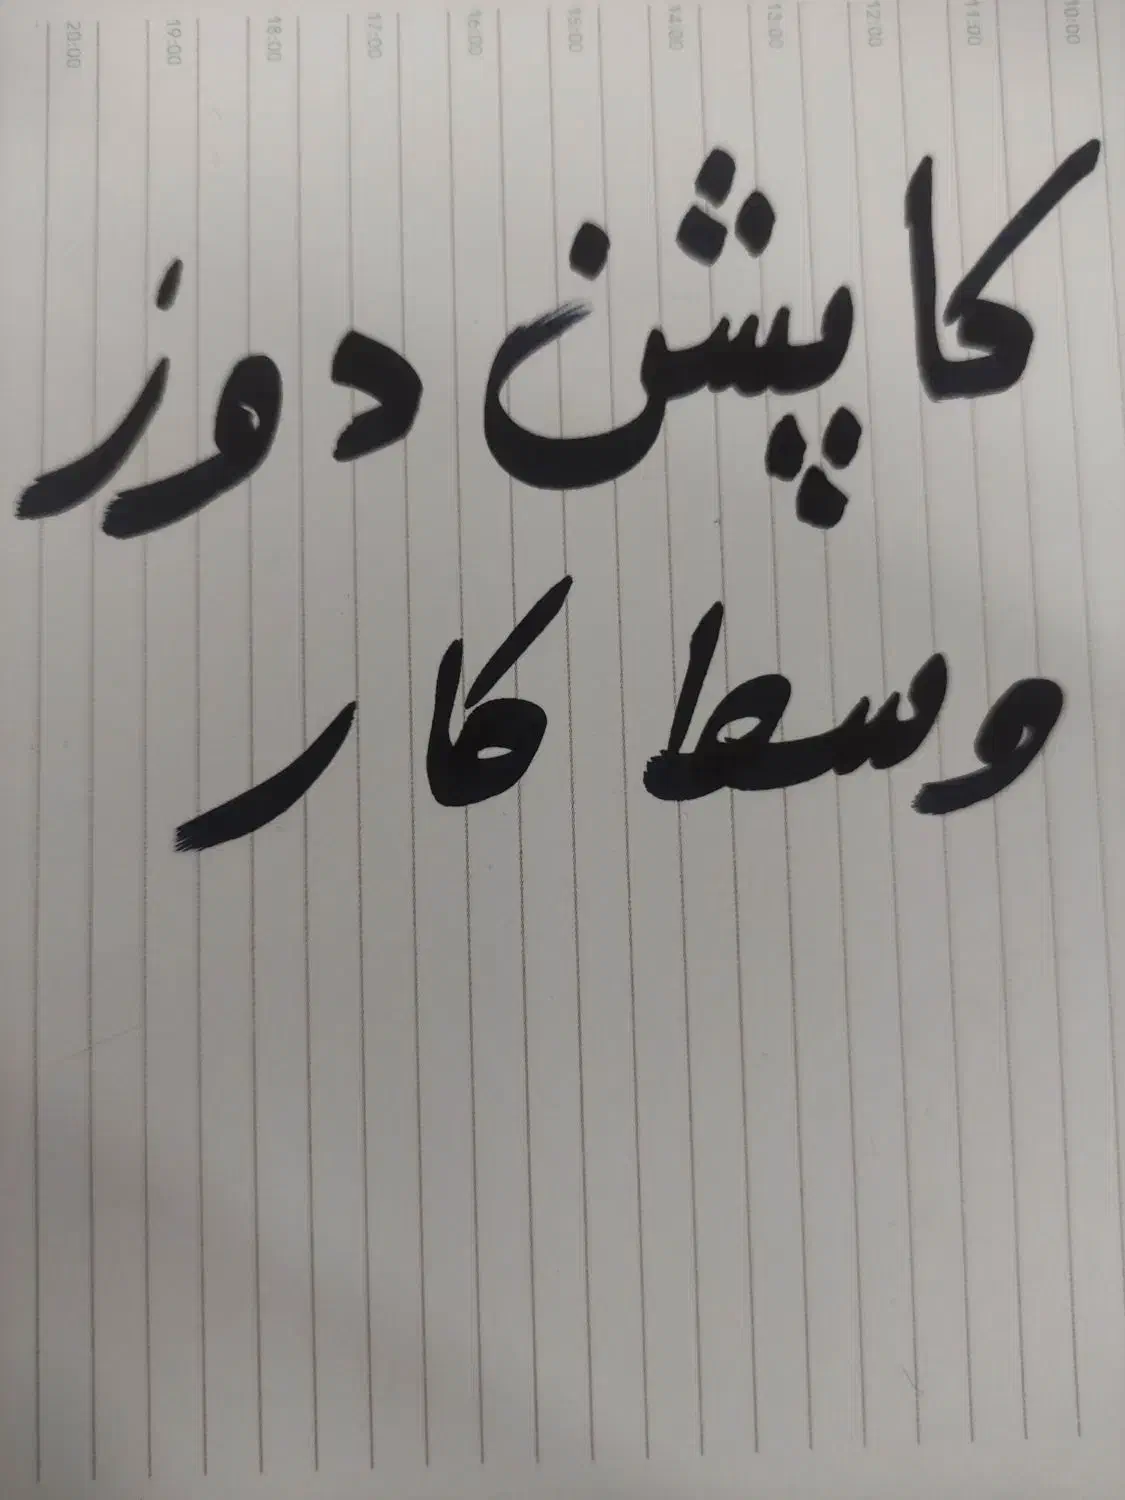 20:00 19:00 18:00 17:00 16:00 15:00 14:00 13:00 12:00 11:00 10:00
کاپشن دوز
وسط کار